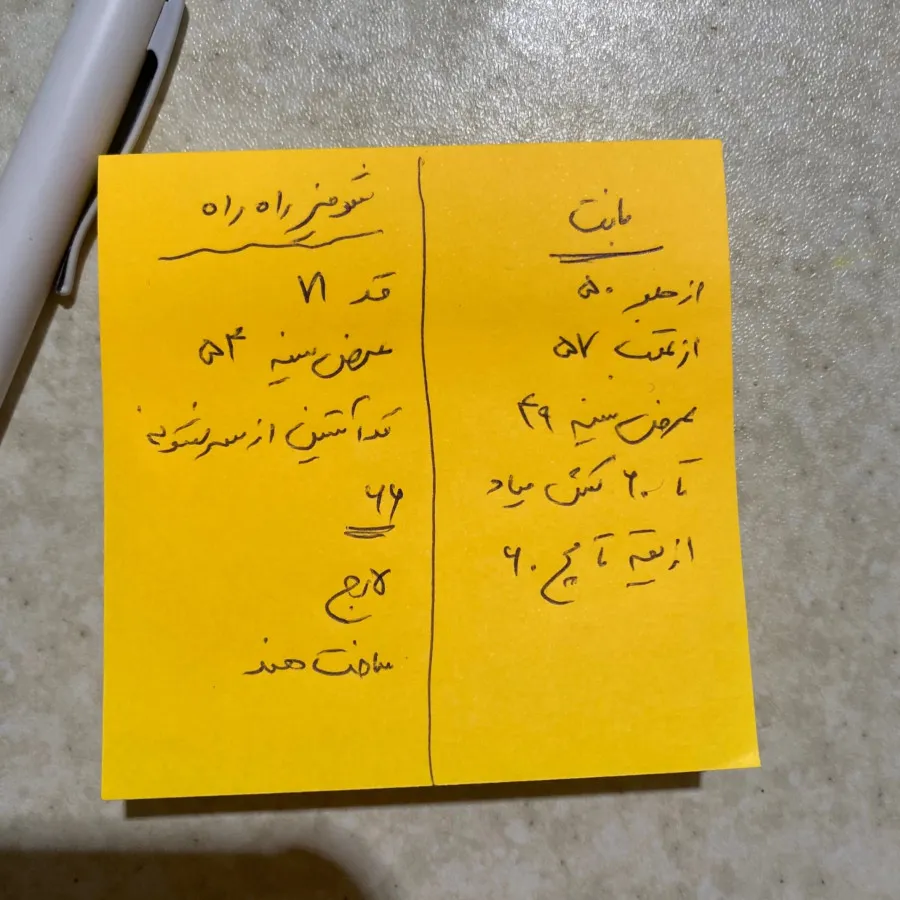 بافت
از جلو ۵۰
از عقب ۵۷
عرض سینه ۴۹
تا ۶۰ کش میاد
از یقه تا مچ ۶۰
شومیز راه راه
قد ۷۱
عرض سینه ۵۴
قد آستین از سرشونه
۶۶
لارج
ساخت هند